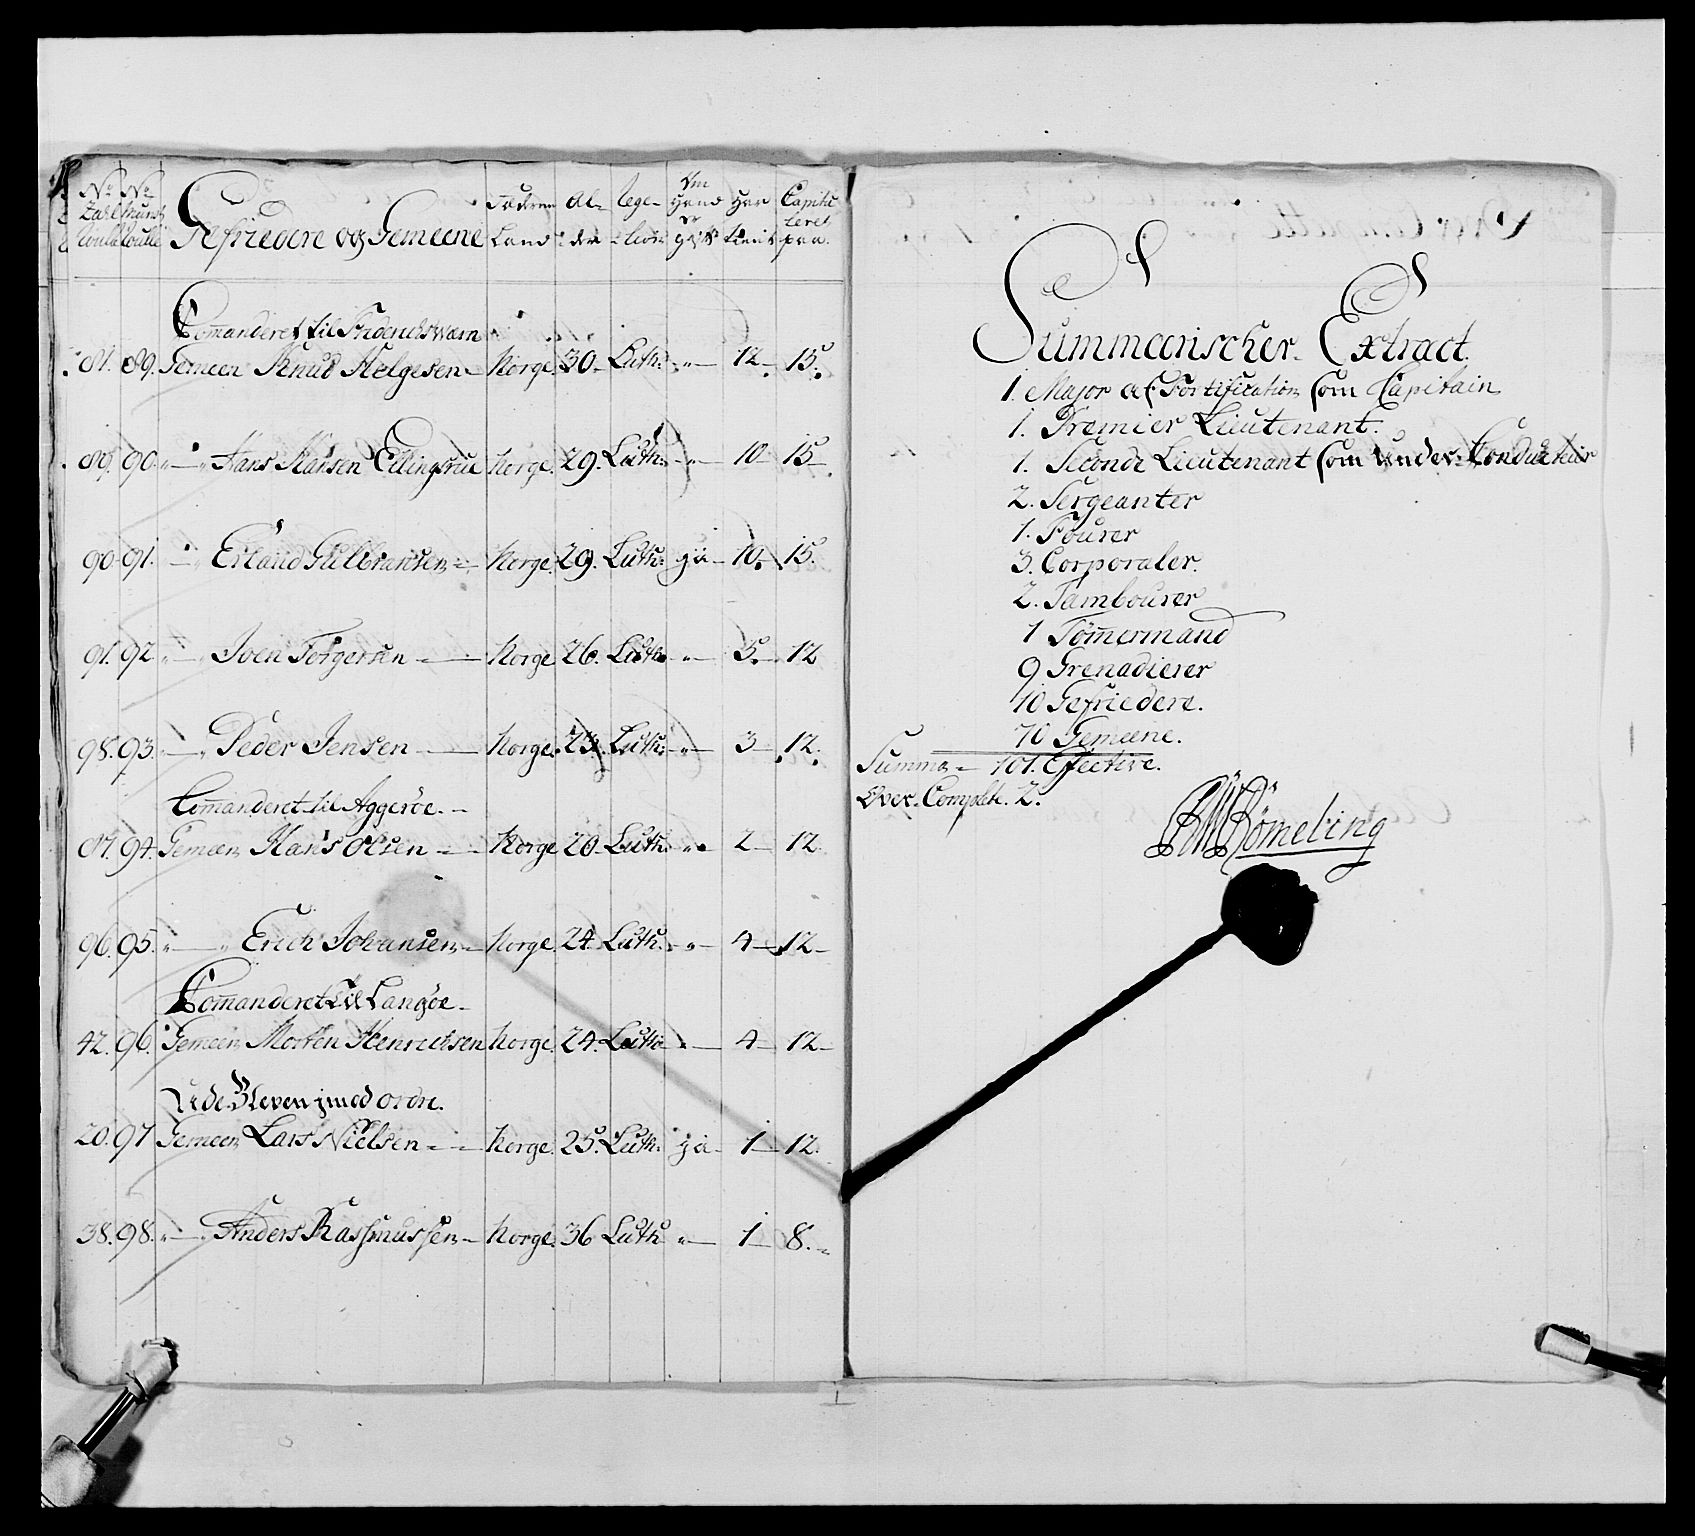 No No
Zahl Munst
Roulle Roulle
Gefriedere og Gemeene
Fæderne Land
Al- der
Relegion
Om Hand er gift
Har tient
Capituleret paa.
Comanderet til Friderichswærn
81. 89. Gemeen Knud Helgesen Norge 30 Luth: „ 12 15.
89. 90. „ Hans Hansen Ellingsrue Norge. 29. Luth: „ 10 15
90. 91. „ Erland Gulbransen Norge. 29. Luth: ja 10. 15.
91. 92 „ Joen Torgersen Norge 26. Luth. „ 5. 12
98. 93. „ Peder Jensen Norge. 23. Luth: „ 3 12.
Comanderet til Aggeröe.
87. 94. Gemeen Hans Olsen Norge 20 Luth: „ 2 12
96. 95. „ Erich Johansen Norge. 24. Luth. „ 4 12
Comanderet til Langöe
42. 96. Gemeen Morten Henrichsen Norge. 24. Luth: „ 4 12
Ude Bleven imod ordre.
20. 97 Gemeen Lars Nielsen Norge. 25. Luth. ja 1 12.
38. 98. „ Anders Rassmussen Norge. 36 Luth „ 1 8.
Summarischer Extract.
1. Major af Fortification som Capitain
1. Premier Lieutenant.
1. Seconde Lieutenant som Under Conducteur
2. Sergeanter
1. Fourer
3. Corporaler.
2. Tambourer
1 Tömermand
9 Grenadierer
10 Gefriedere.
70 Gemeene.
Summa 101. Effective.
Over Complet. 2.
Römeling